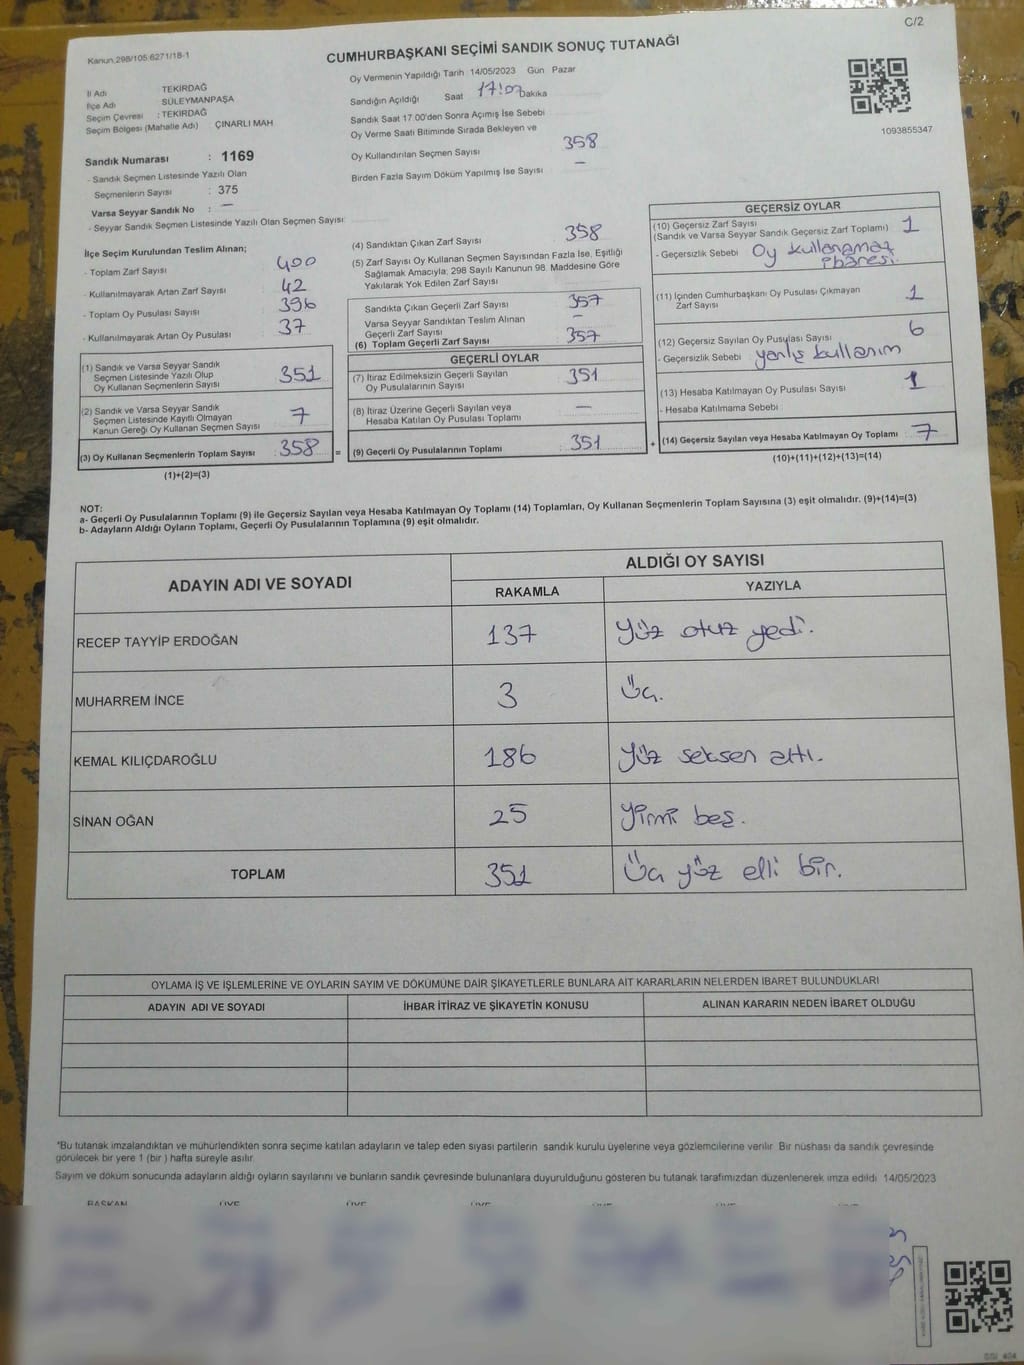 C/2
Kanun,298/105 6271/18-1
CUMHURBAŞKANI SEÇİMİ SANDIK SONUÇ TUTANAĞI
İl Adı TEKİRDAĞ
İlçe Adı SÜLEYMANPAŞA
Seçim Çevresi : TEKİRDAĞ
Seçim Bölgesi (Mahalle Adı) ÇINARLI MAH
Sandık Numarası : 1169
- Sandık Seçmen Listesinde Yazılı Olan
Seçmenlerin Sayısı : 375
Varsa Seyyar Sandık No : –
- Seyyar Sandık Seçmen Listesinde Yazılı Olan Seçmen Sayısı:
Oy Vermenin Yapıldığı Tarih 14/05/2023 Gün Pazar
Sandığın Açıldığı Saat 17:07 Dakika
Sandık Saat 17.00'den Sonra Açımış İse Sebebi
Oy Verme Saati Bitiminde Sırada Bekleyen ve
Oy Kullandırılan Seçmen Sayısı 358
Birden Fazla Sayım Döküm Yapılmış İse Sayısı –
1093855347
İlçe Seçim Kurulundan Teslim Alınan;
- Toplam Zarf Sayısı 400
- Kullanılmayarak Artan Zarf Sayısı 42
- Toplam Oy Pusulası Sayısı 396
- Kullanılmayarak Artan Oy Pusulası 37
(1) Sandık ve Varsa Seyyar Sandık
Seçmen Listesinde Yazılı Olup
Oy Kullanan Seçmenlerin Sayısı 351
(2) Sandık ve Varsa Seyyar Sandık
Seçmen Listesinde Kayıtlı Olmayan
Kanun Gereği Oy Kullanan Seçmen Sayısı 7
(3) Oy Kullanan Seçmenlerin Toplam Sayısı : 358 =
(1)+(2)=(3)
(4) Sandıktan Çıkan Zarf Sayısı 358
(5) Zarf Sayısı Oy Kullanan Seçmen Sayısından Fazla İse, Eşitliği
Sağlamak Amacıyla; 298 Sayılı Kanunun 98. Maddesine Göre
Yakılarak Yok Edilen Zarf Sayısı
Sandıkta Çıkan Geçerli Zarf Sayısı 357
Varsa Seyyar Sandıktan Teslim Alınan
Geçerli Zarf Sayısı –
(6) Toplam Geçerli Zarf Sayısı 357
GEÇERLİ OYLAR
(7) İtiraz Edilmeksizin Geçerli Sayılan
Oy Pusulalarının Sayısı 351
(8) İtiraz Üzerine Geçerli Sayılan veya
Hesaba Katılan Oy Pusulası Toplamı –
(9) Geçerli Oy Pusulalarının Toplamı : 351 +
GEÇERSİZ OYLAR
(10) Geçersiz Zarf Sayısı
(Sandık ve Varsa Seyyar Sandık Geçersiz Zarf Toplamı) 1
- Geçersizlik Sebebi Oy kullanamaz
ibaresi.
(11) İçinden Cumhurbaşkanı Oy Pusulası Çıkmayan
Zarf Sayısı 1
(12) Geçersiz Sayılan Oy Pusulası Sayısı 6
- Geçersizlik Sebebi yanlış kullanım
(13) Hesaba Katılmayan Oy Pusulası Sayısı 1
- Hesaba Katılmama Sebebi
(14) Geçersiz Sayılan veya Hesaba Katılmayan Oy Toplamı : 7
(10)+(11)+(12)+(13)=(14)
NOT:
a- Geçerli Oy Pusulalarının Toplamı (9) ile Geçersiz Sayılan veya Hesaba Katılmayan Oy Toplamı (14) Toplamları, Oy Kullanan Seçmenlerin Toplam Sayısına (3) eşit olmalıdır. (9)+(14)=(3)
b- Adayların Aldığı Oyların Toplamı, Geçerli Oy Pusulalarının Toplamına (9) eşit olmalıdır.
ADAYIN ADI VE SOYADI
ALDIĞI OY SAYISI
RAKAMLA YAZIYLA
RECEP TAYYİP ERDOĞAN 137 Yüz otuz yedi.
MUHARREM İNCE 3 Üç.
KEMAL KILIÇDAROĞLU 186 Yüz seksen altı.
SİNAN OĞAN 25 Yirmi beş.
TOPLAM 351 Üç yüz elli bir.
OYLAMA İŞ VE İŞLEMLERİNE VE OYLARIN SAYIM VE DÖKÜMÜNE DAİR ŞİKAYETLERLE BUNLARA AİT KARARLARIN NELERDEN İBARET BULUNDUKLARI
ADAYIN ADI VE SOYADI İHBAR İTİRAZ VE ŞİKAYETİN KONUSU ALINAN KARARIN NEDEN İBARET OLDUĞU
*Bu tutanak imzalandıktan ve mühürlendikten sonra seçime katılan adayların ve talep eden siyasi partilerin sandık kurulu üyelerine veya gözlemcilerine verilir Bir nüshası da sandık çevresinde
görülecek bir yere 1 (bir ) hafta süreyle asılır
Sayım ve döküm sonucunda adayların aldığı oyların sayılarını ve bunların sandık çevresinde bulunanlara duyurulduğunu gösteren bu tutanak tarafımızdan düzenlenerek imza edildi 14/05/2023
BAŞKAN ÜYE ÜYE ÜYE ÜYE